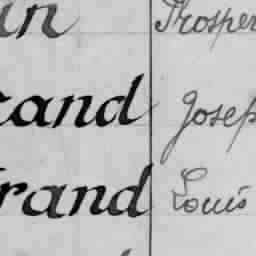 in Prosper
rand Josep
rand Louis